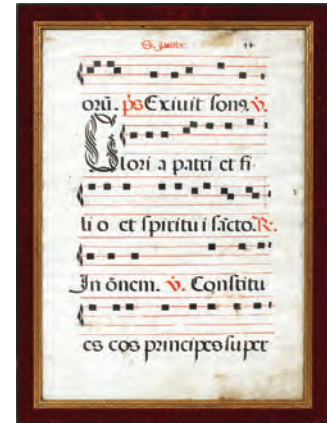 orū. p̄s Exiuit ſonꝯ. v.
Glori a patri et fi
li o et ſpiritu i ſācto. R.
In ōnem. v. Conſtitu
es eos principes ſu per